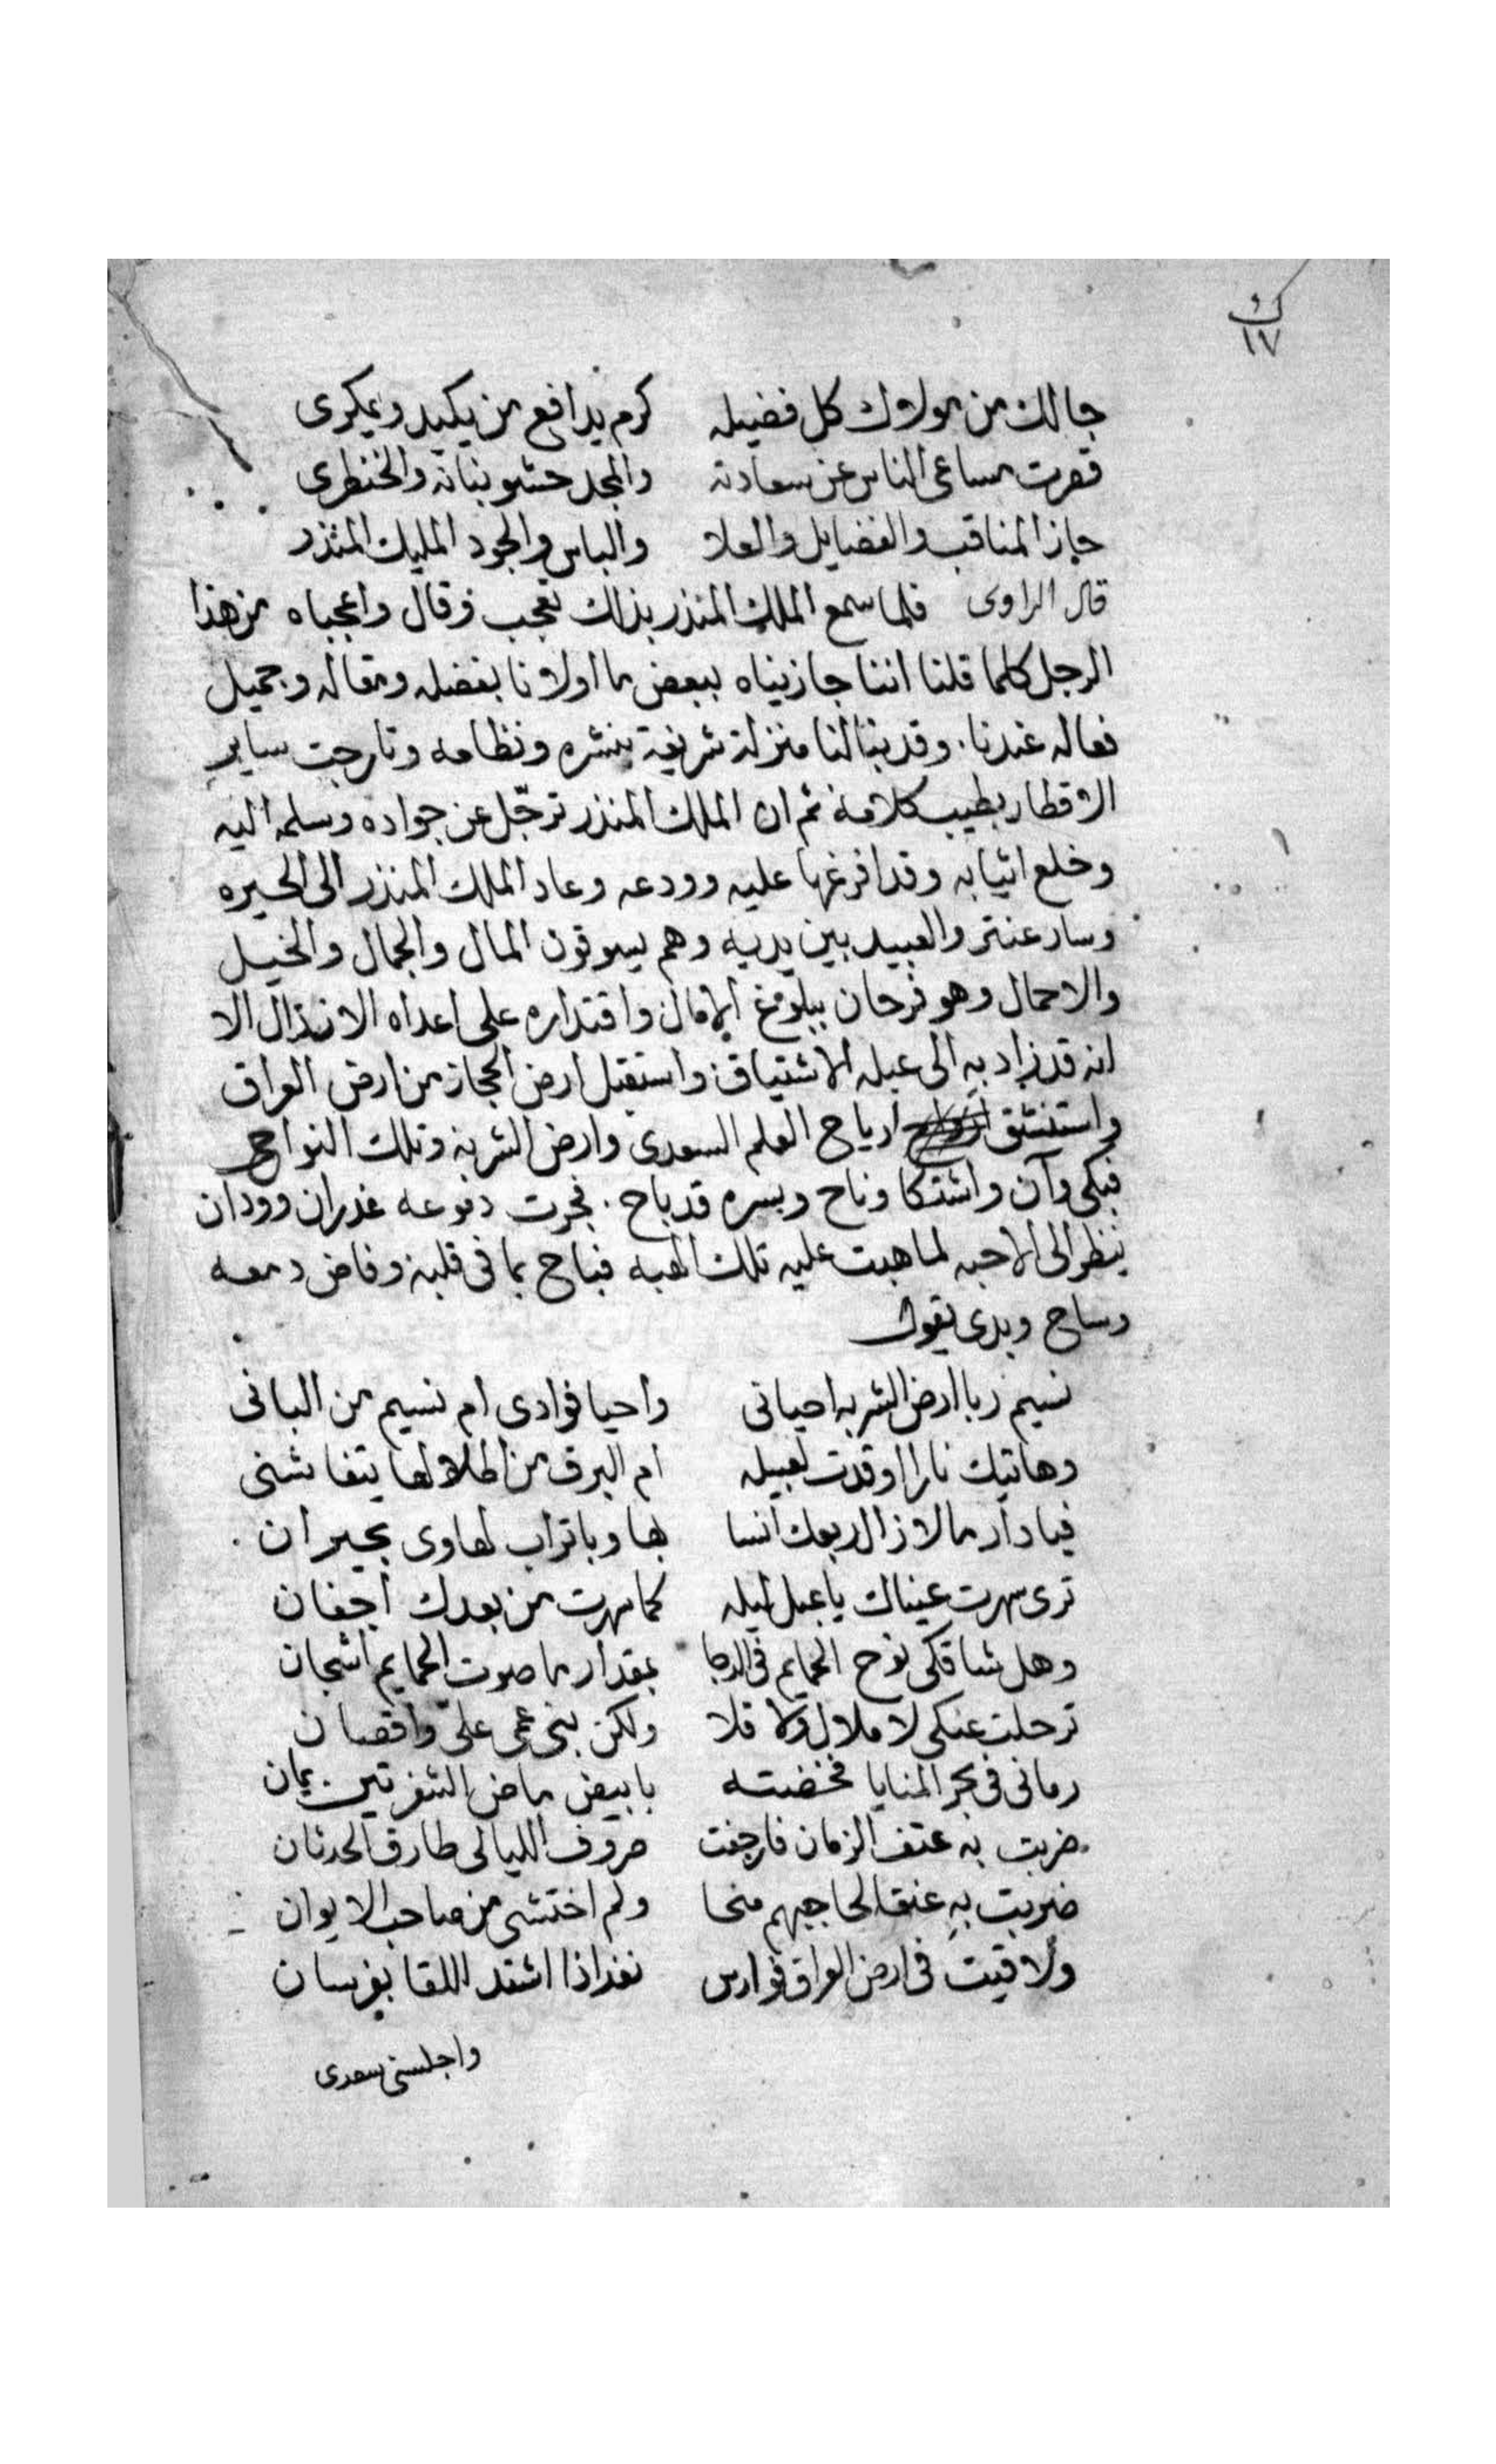 ك
١٧
جالك من مولاوك كل فضيله كرم يدافع من يكيد ويمكرى
قصرت مساعى الناس عن سعادته والمجد حشو بنانه والخنطرى
حاز المناقب والفضايل والعلا والباس والجود المليك المنذر
قال الراوى فلما سمع الملك المنذر بذلك تعجب وقال واعجباه من هذا
الرجل كلما قلنا اننا جازيناه ببعض ما اولانا بفضله ومقاله وجميل
فعاله عندنا. وقد بنالنا منزلة شريفة بنشره ونظامه وتارجت ساير
الاقطار بطيب كلامه ثم ان الملك المنذر ترجّل عن جواده وسلمه اليه
وخلع اثيابه وقد افرغها عليه وودعه وعاد الملك المنذر الى الحيره
وسار عنتر والعبيد بين يديه وهم يسوقون المال والجمال والخيل
والاحمال وهو فرحان ببلوغ الامال واقتداره على اعداه الانذال الا
انه قد زاد به الى عبله الاشتياق واستقبل ارض الحجاز من ارض العراق
واستنشق ارياح العلم السعدى وارض الشربه وتلك النواحى
فبكى وآن واشتكا وناح وبسره قد باح. فجرت دموعه غدران وودان
ينظر الى الاحبه لما هبت عليه تلك الهبه فباح بما فى قلبه وفاض دمعه
وساح وبدى يقول
نسيم ربا ارض الشربه احيانى واحيا فوادى ام نسيم من البانى
وهاتيك نارا اوقدت لعبيله ام البرق من اطلالها يتغاشنى
فيا دار ما لازال ربعك انسا بها وباتراب لهاوى بجيران.
ترى سهرت عيناك يا عبل ليله كما سهرت من بعدك اجفان
وهل شاقكى نوح الحمايم فى الدجا بمقدار ما صوت الحمايم اشجان
ترحلت عنكى لا ملال ولا قلا ولكن بنى عمى علىّ واقصان
رمانى فى بحر المنايا فخضته بابيض ماض الشفرتين يمان
ضربت به عتف الزمان فارجفت صروف الليالى طارق الحدثان
ضربت به عنق الحاجبهم ضحا ولم اختشى من صاحب الايوان
ولاقيت فى ارض العراق فوارس تعد اذا اشتد اللقا بفرسان
واجلسنى سعدى